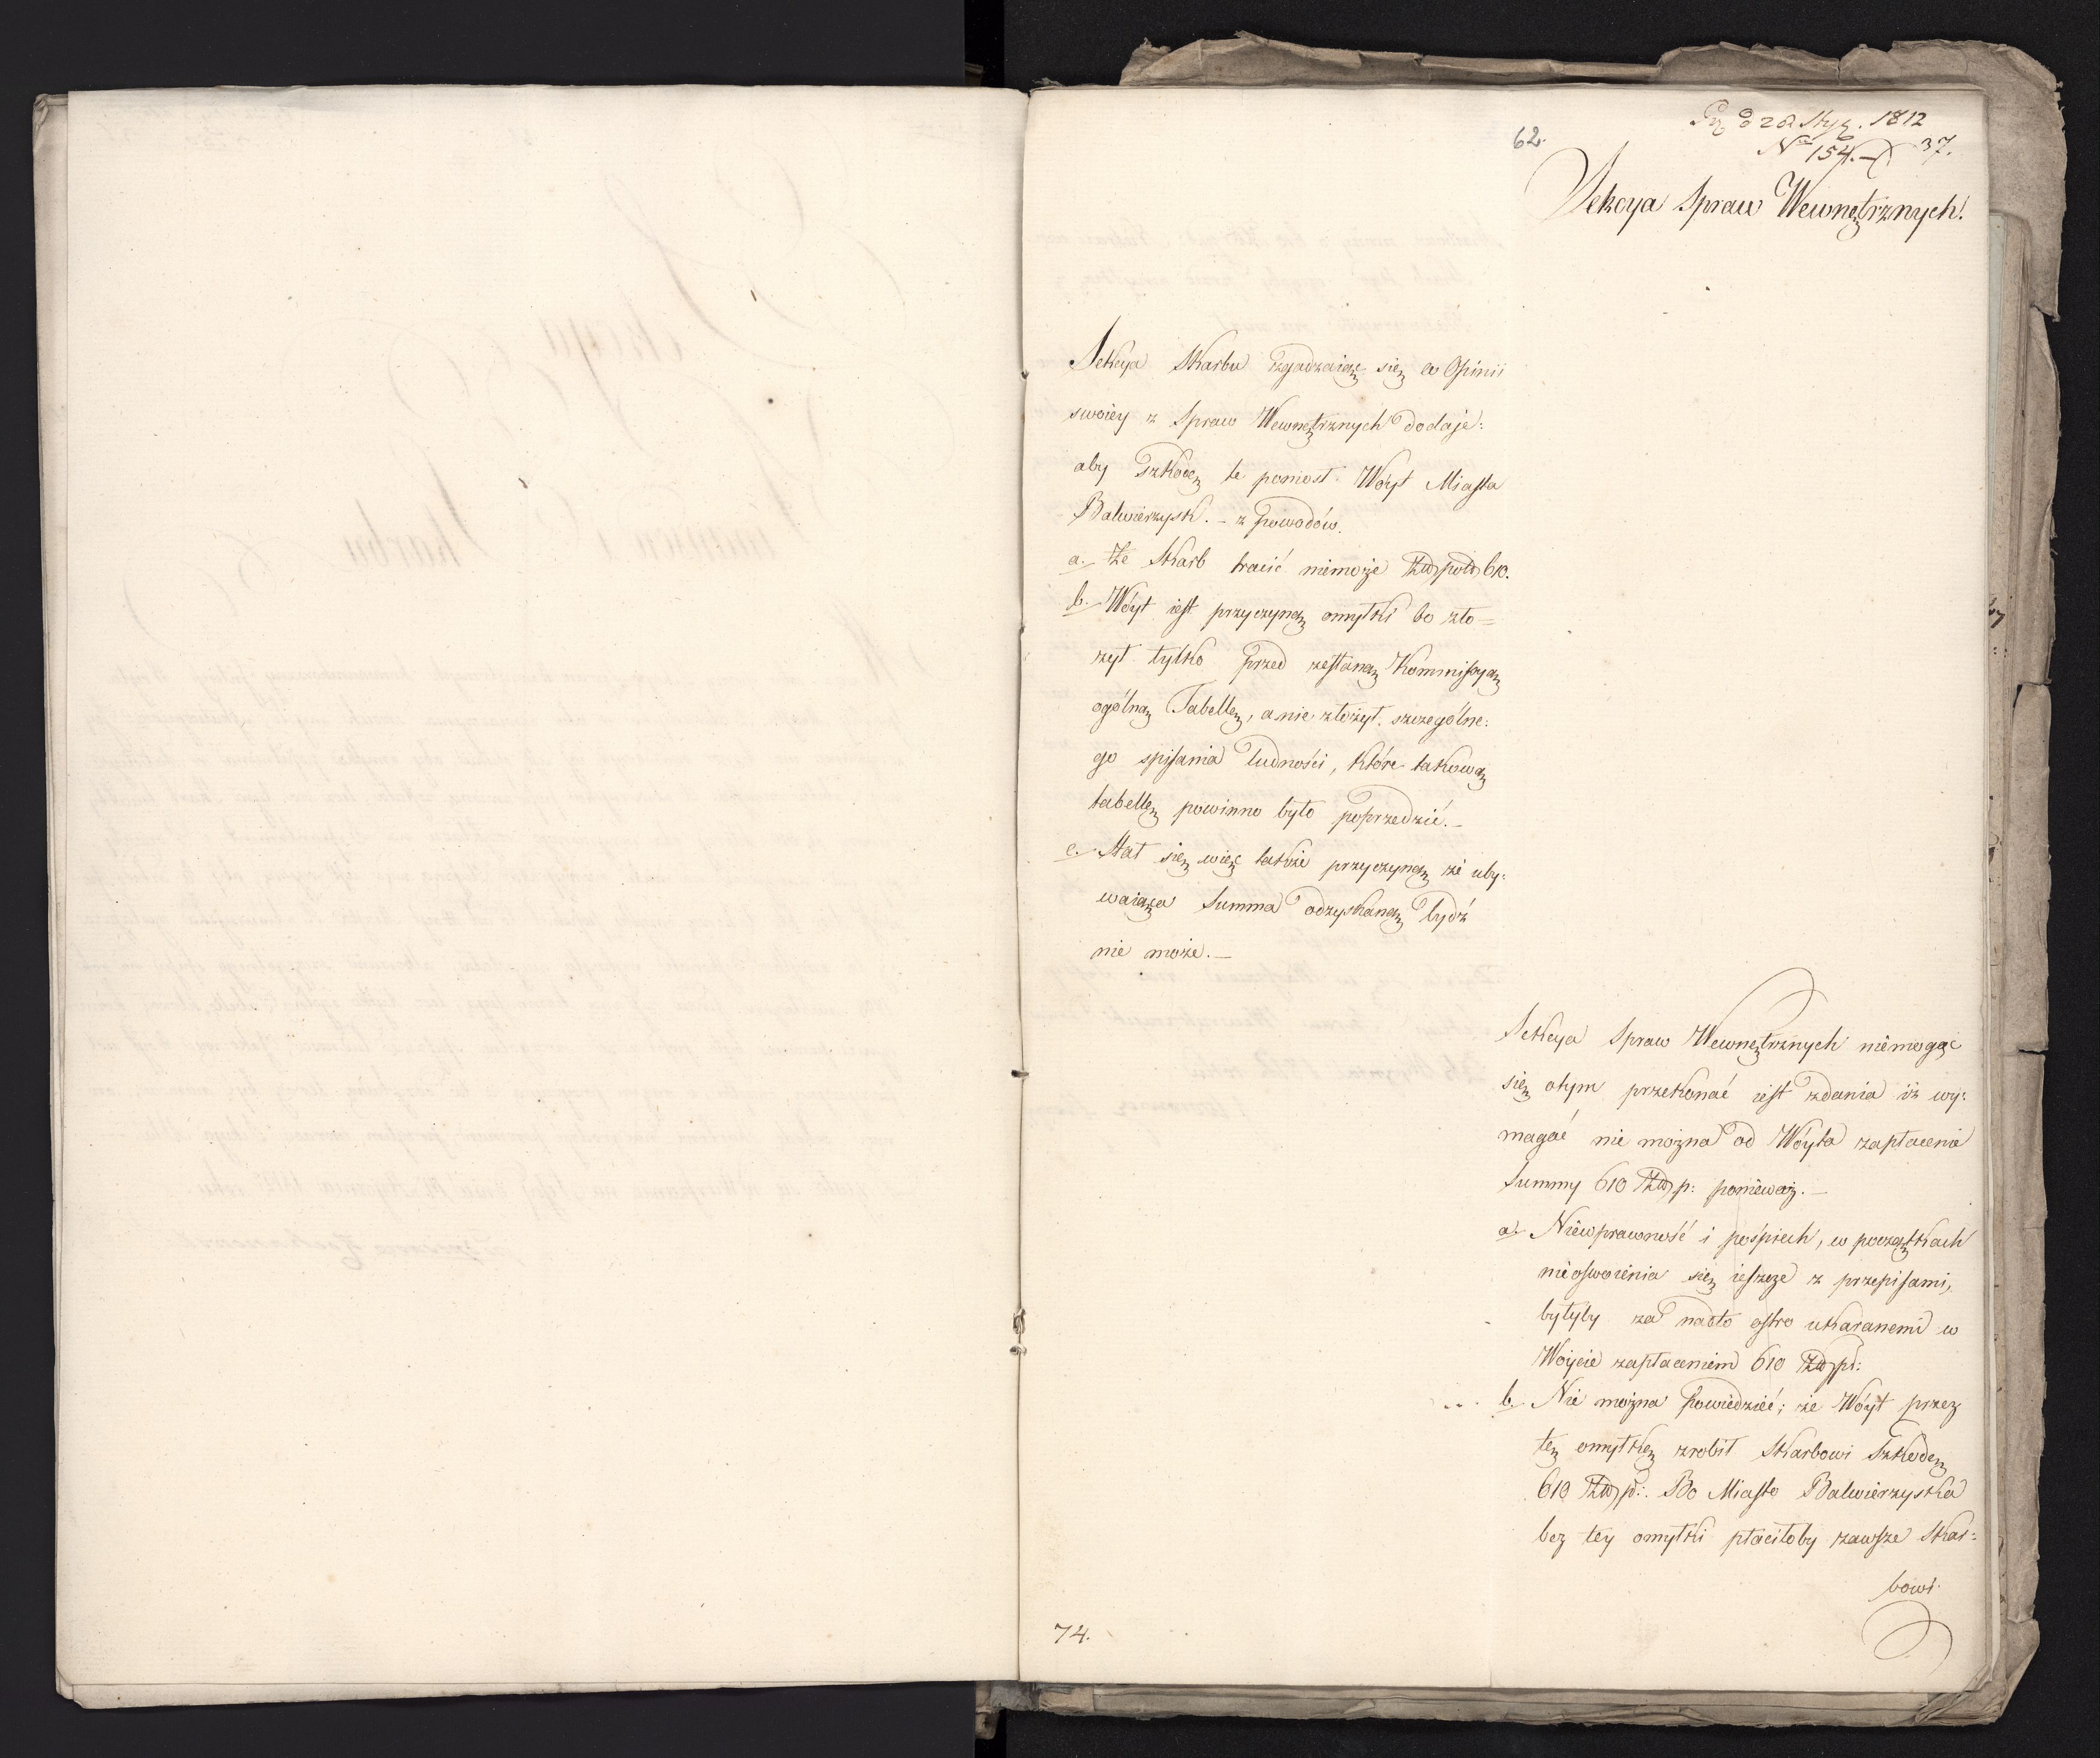 62.
Prz. d 28 Stycz. 1812
No 154. 37.
Sekcya Spraw Wewnętrznych.
Sekcya Skarbu zgadzaiąc się w Opinii
swoiey z Spraw Wewnętrznych dodaje:
aby Szkodę tę poniosł Wóyt Miasta
Balwierzysk. - z powodów.
a. Że Skarb tracić niemoże Złłpols 610.
b. Wóyt iest przyczyną omyłki bo zło=
żył tylko przed zesłaną Kommissyą
ogólną Tabellę, a nie złożył szczególne:
go spisania ludności, które takową
tabellę powinno było poprzedzić. -
c. Stał się więc także przyczyną że uby:
waiąca Summa odzyskaną bydź
nie może. -
Sekcya Spraw Wewnętrznych niemogąc
się otym przekonać iest zdania iż wy:
magać nie można od Wóyta zapłacenia
Summy 610 Złłp: ponieważ. -
a. Niewprawność i pośpiech, w początkach
nieoswoienia się ieszcze z przepisami,
byłyby za nadto ostro ukaranemi w
Wóycie zapłaceniem 610 Złłpl:
b. Nie można powiedzieć; że Wóyt przez
tę omyłkę zrobił Skarbowi Szkodę
610 Złłp:. Bo Miasto Balwierzyska
bez tey omyłki płaciłoby zawsze Skar=
bowi
74.